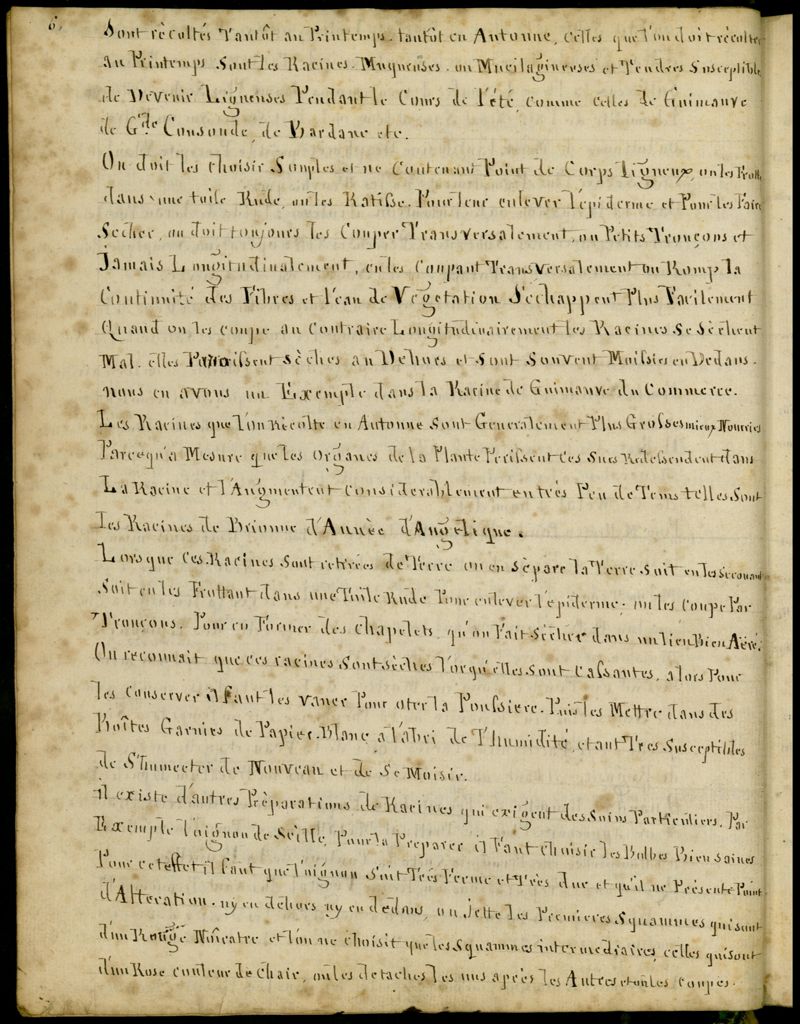 6,
Sont récoltés Tantôt au Printemps. tantôt en Automne, Celles que l'on doit récolter
Au Printemps Sont les Racines. Muqueuses. ou Mucilagineuses et Tendres Susceptible
de Devenir Ligneuses Pendant le Cours de l'été, comme celles de Guimauve
de Gde Consoude, de Bardane etc.
On doit les choisir Souples et ne Contenant Point de Corps Ligneux, on les Frott
dans une toile Rude, on les Ratisse. Pour leur enlever l'épiderme et Pour les Faire
Sècher, on doit toujours les Couper Transversalement, ou Petits Tronçons et
Jamais Longitudinalement, en les Coupant Transversalement on Romp la
Continuité des Fibres et l'eau de Végétation S'échappent Plus Facilement
Quand on les coupe au Contraire Longitudinairement les Racines Se Sèchent
Mal. elles Paraoissent Sèches au Dehors et Sont Souvent Moissies en Dedans.
nous en avons un Exemple dans la Racine de Guimauve du Commerce.
Les Racines que l'on Récolte en Automne Sont Generalement Plus Grosses mieux Nourries
Parcequ'a Mesure que les Organes de la Plante Perissent Ces Sucs Redessendent dans
La Racine et l'Augmentent Considerablement en très Peu de Tems telles Sont
les Racines de Brionne d'Année d'Angelique.
Lorsque Ces Racines Sont retirées de Terre on en Sèpare la Terre Soit en les Secouant
Soit en les Frottant dans une Toile Rude Pour enlever l'epiderme. on les Coupe Par
Tronçons. Pour en Former des Chapelets, qu'on Fait Sècher dans un lieu Bien Aéré.
On reconnait que ces racines Sont sèches lorqu'elles sont Cassantes, alors Pour
les Conserver il Faut les vaner Pour oter la Poussiere. Puis les Mettre dans des
Boîtes Garnies de Papier. Blanc a l'abri de l'Humidité, etant Tres Susceptibles
de S'humecter de Nouveau et de Se Moisir.
il existe d'autres Préparations de Racines qui exigent des Soins Particuliers. Par
Exemple l'oignon de Scille, Pour la Preparer il Faut Choisir les Bulbes Bien Saines
Pour cet effet il faut que l'oignon Soit Très Ferme et Très dur et qu'il ne Présente Point
d'Alteration. ny en dehors ny en dedans, on Jette les Premieres Squammes qui sont
d'un Rouge Noiratre et l'on ne choisit que les Squammes intermediaires, celles qui sont
d'un Rose couleur de Chair, on les detaches les uns après les Autres et on les Coupes.